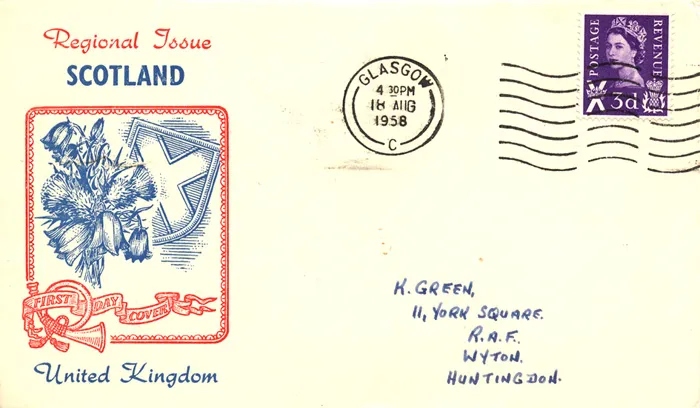 Regional Issue
SCOTLAND
FIRST DAY COVER
United Kingdom
GLASGOW
4 30PM
18 AUG
1958
C
POSTAGE
REVENUE
3d
K. GREEN,
11, YORK SQUARE.
R.A.F.
WYTON.
HUNTINGDON.